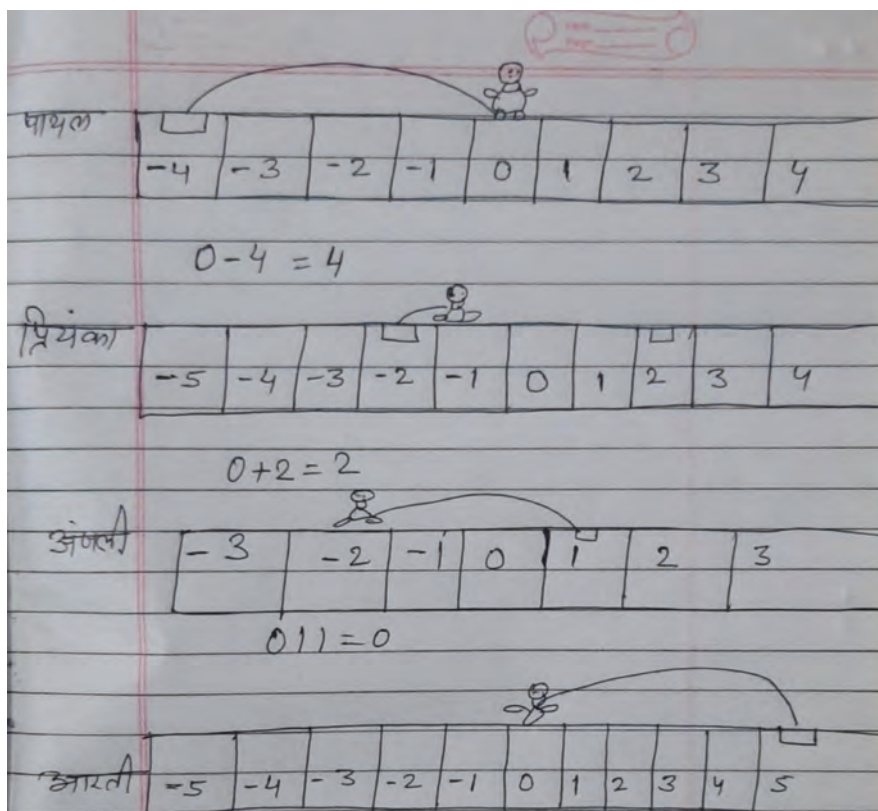 पायल
-4 -3 -2 -1 0 1 2 3 4
0-4 = 4
प्रियंका
-5 -4 -3 -2 -1 0 1 2 3 4
0+2=2
अंजली
-3 -2 -1 0 1 2 3
011=0
आरती -5 -4 -3 -2 -1 0 1 2 3 4 5